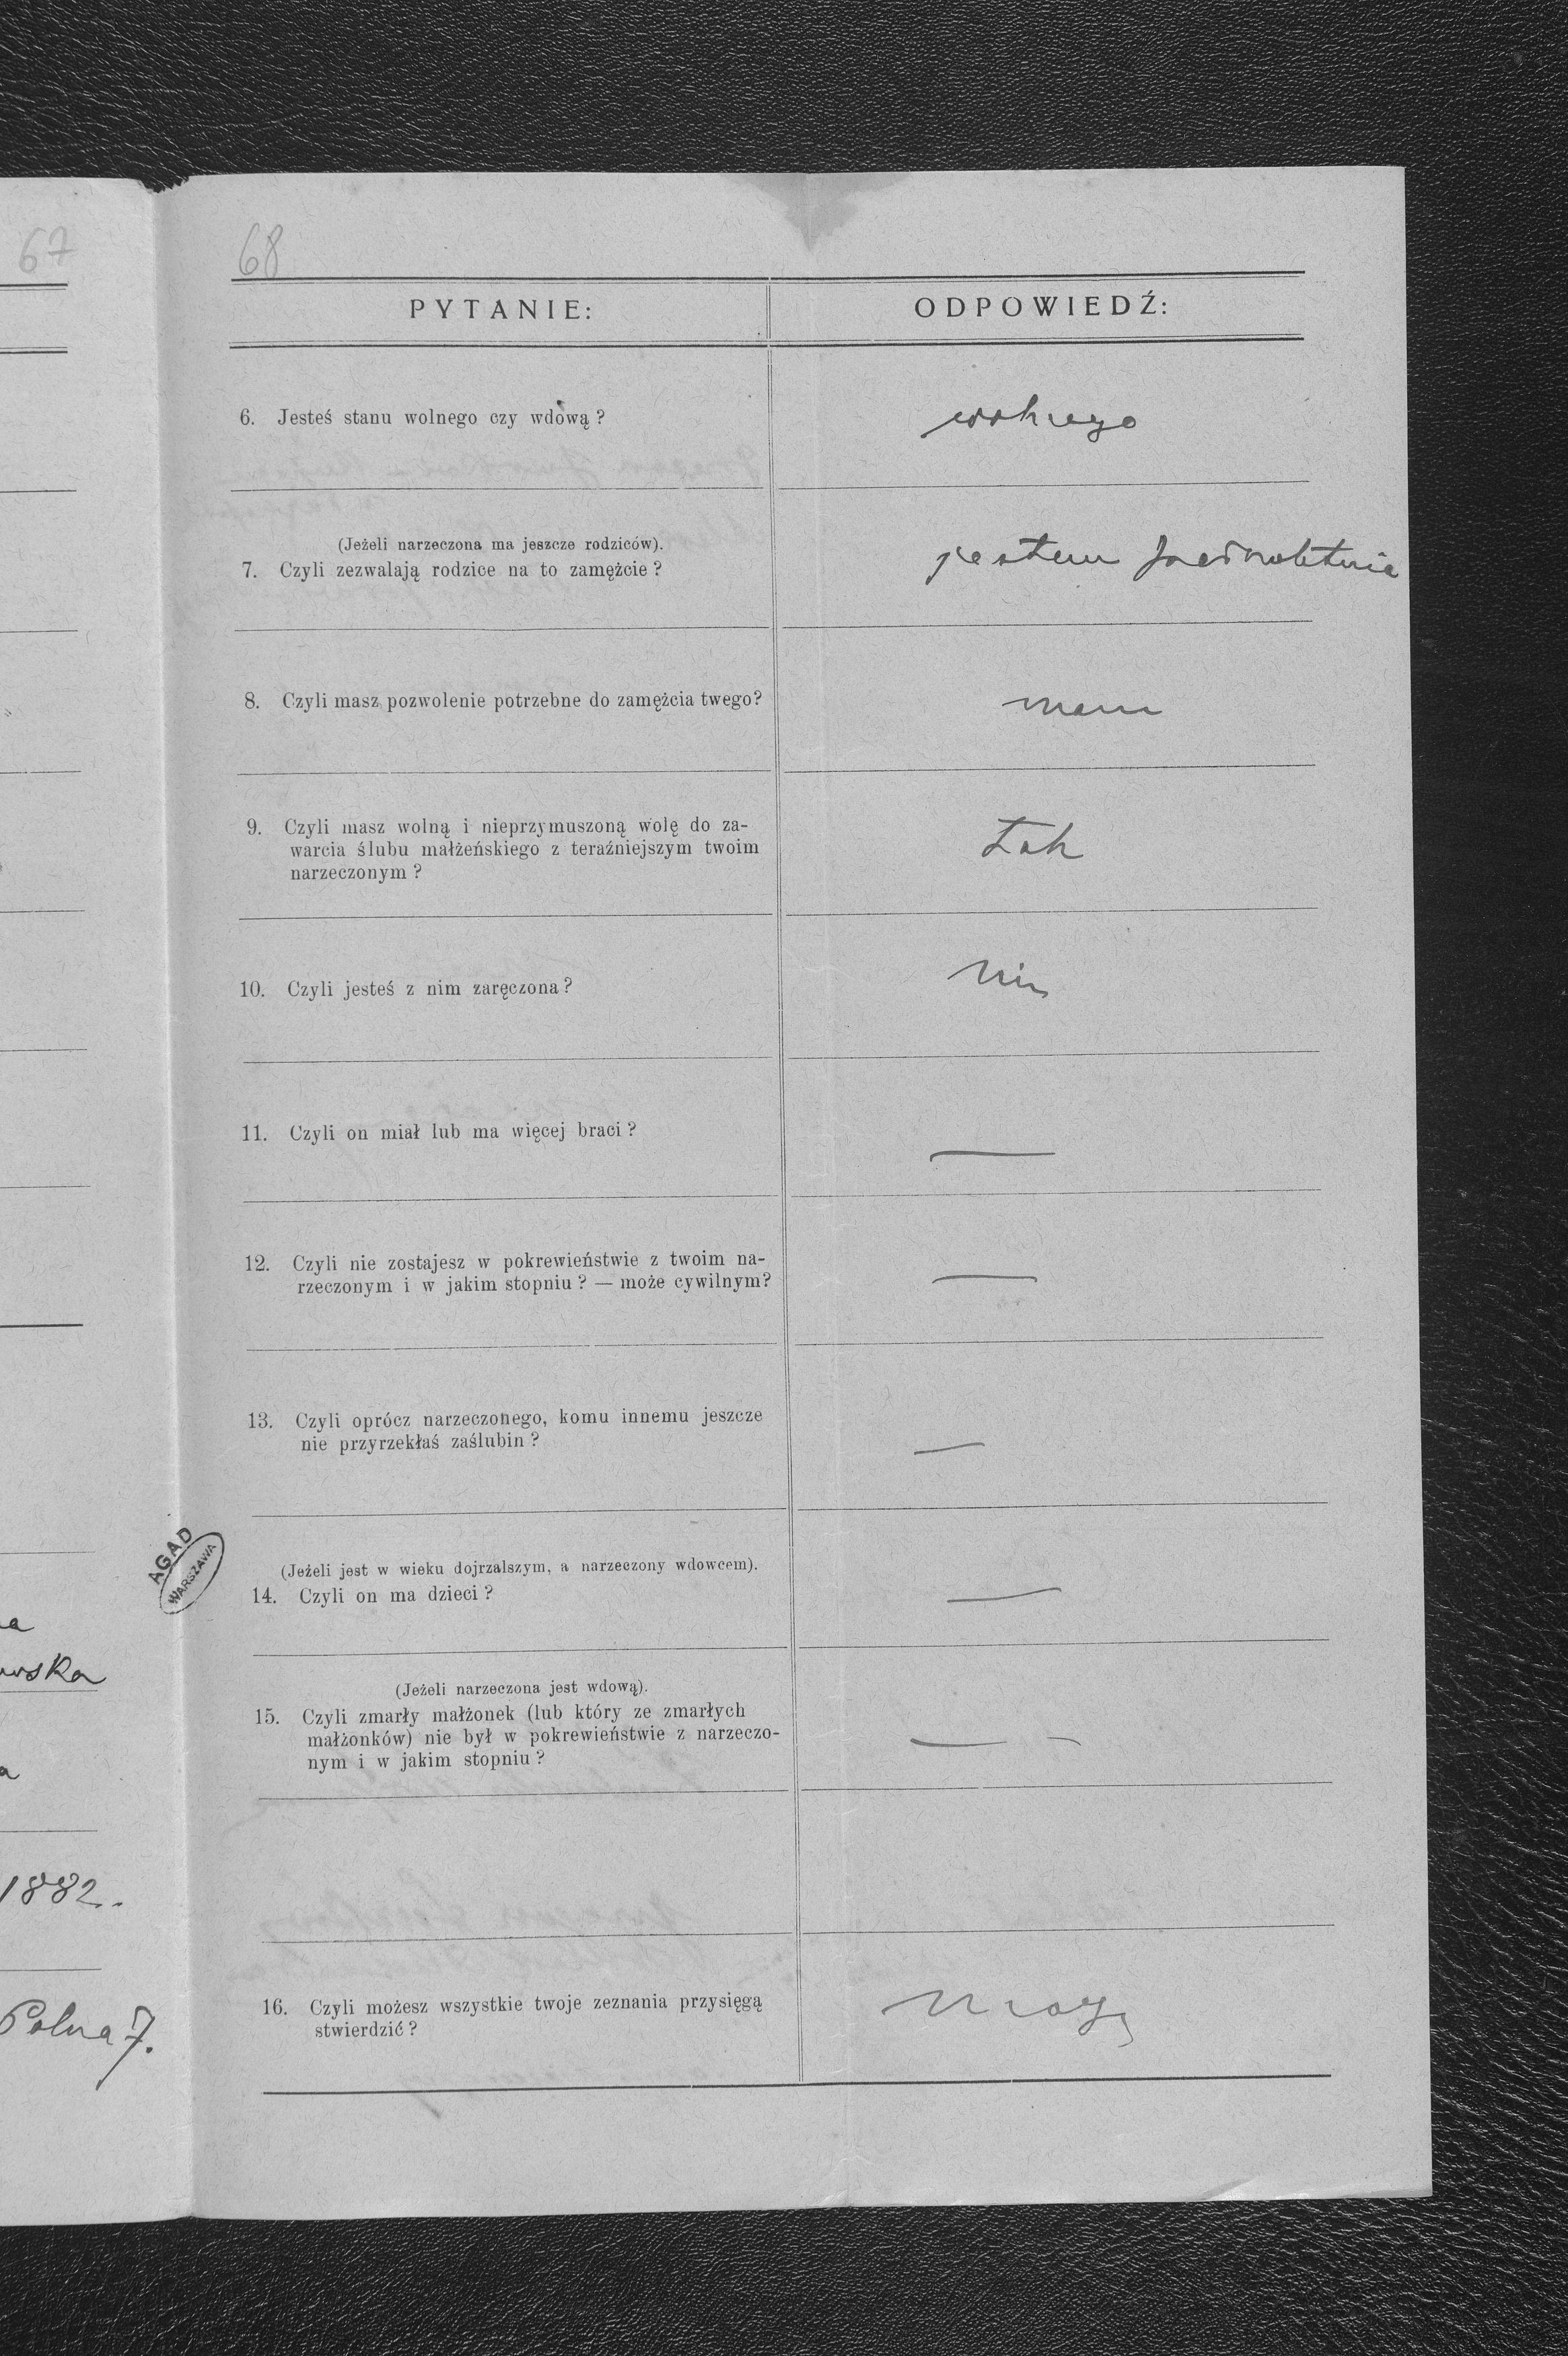 67
68
PYTANIE:
ODPOWIEDŹ:
6. Jesteś stanu wolnego czy wdową?
wolnego
(Jeżeli narzeczona ma jeszcze rodziców).
7. Czyli zezwalają rodzice na to zamężcie?
jestem pełnoletnia
8. Czyli masz pozwolenie potrzebne do zamężcia twego?
mam
9. Czyli masz wolną i nieprzymuszoną wolę do za-
warcia ślubu małżeńskiego z teraźniejszym twoim
narzeczonym?
tak
10. Czyli jesteś z nim zaręczona?
nie
11. Czyli on miał lub ma więcej braci?
—
12. Czyli nie zostajesz w pokrewieństwie z twoim na-
rzeczonym i w jakim stopniu? — może cywilnym?
—
13. Czyli oprócz narzeczonego, komu innemu jeszcze
nie przyrzekłaś zaślubin?
—
AGAD
WARSZAWA
(Jeżeli jest w wieku dojrzalszym, a narzeczony wdowcem).
14. Czyli on ma dzieci?
—
(Jeżeli narzeczona jest wdową).
15. Czyli zmarły małżonek (lub który ze zmarłych
małżonków) nie był w pokrewieństwie z narzeczo-
nym i w jakim stopniu?
— -
1882.
16. Czyli możesz wszystkie twoje zeznania przysięgą
stwierdzić?
mogę
Polna 7.